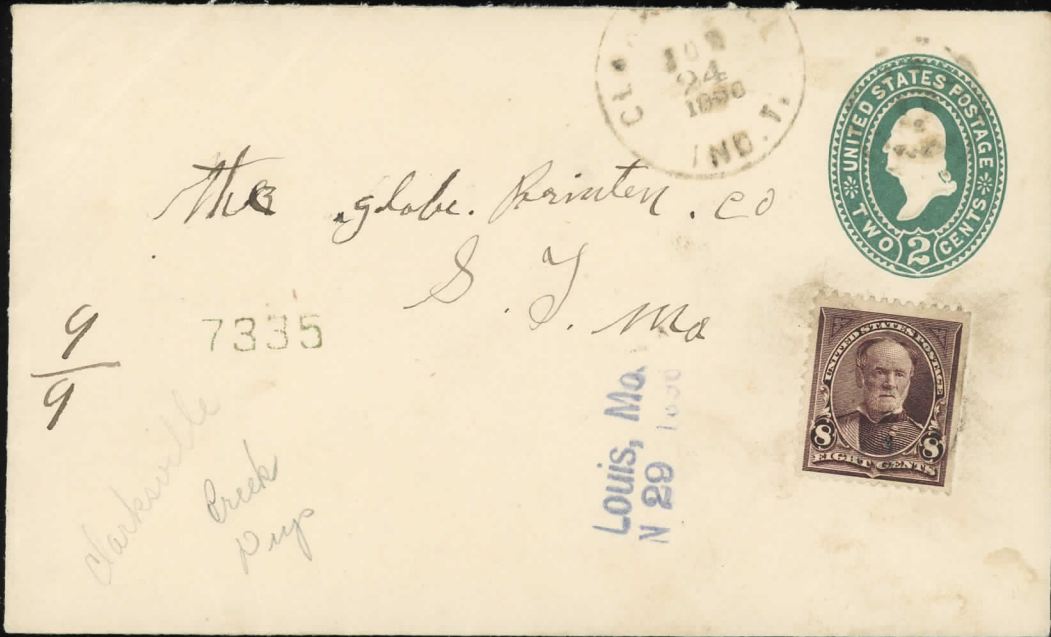 JUN
24
IND. T.
UNITED STATES POSTAGE
TWO 2 CENTS
The globe. Printen. co
S. L. Mo
9
9
7335
UNITED STATES POSTAGE
8 8
EIGHT CENTS
Louis, Mo.
N 29
Clarksville
Creek